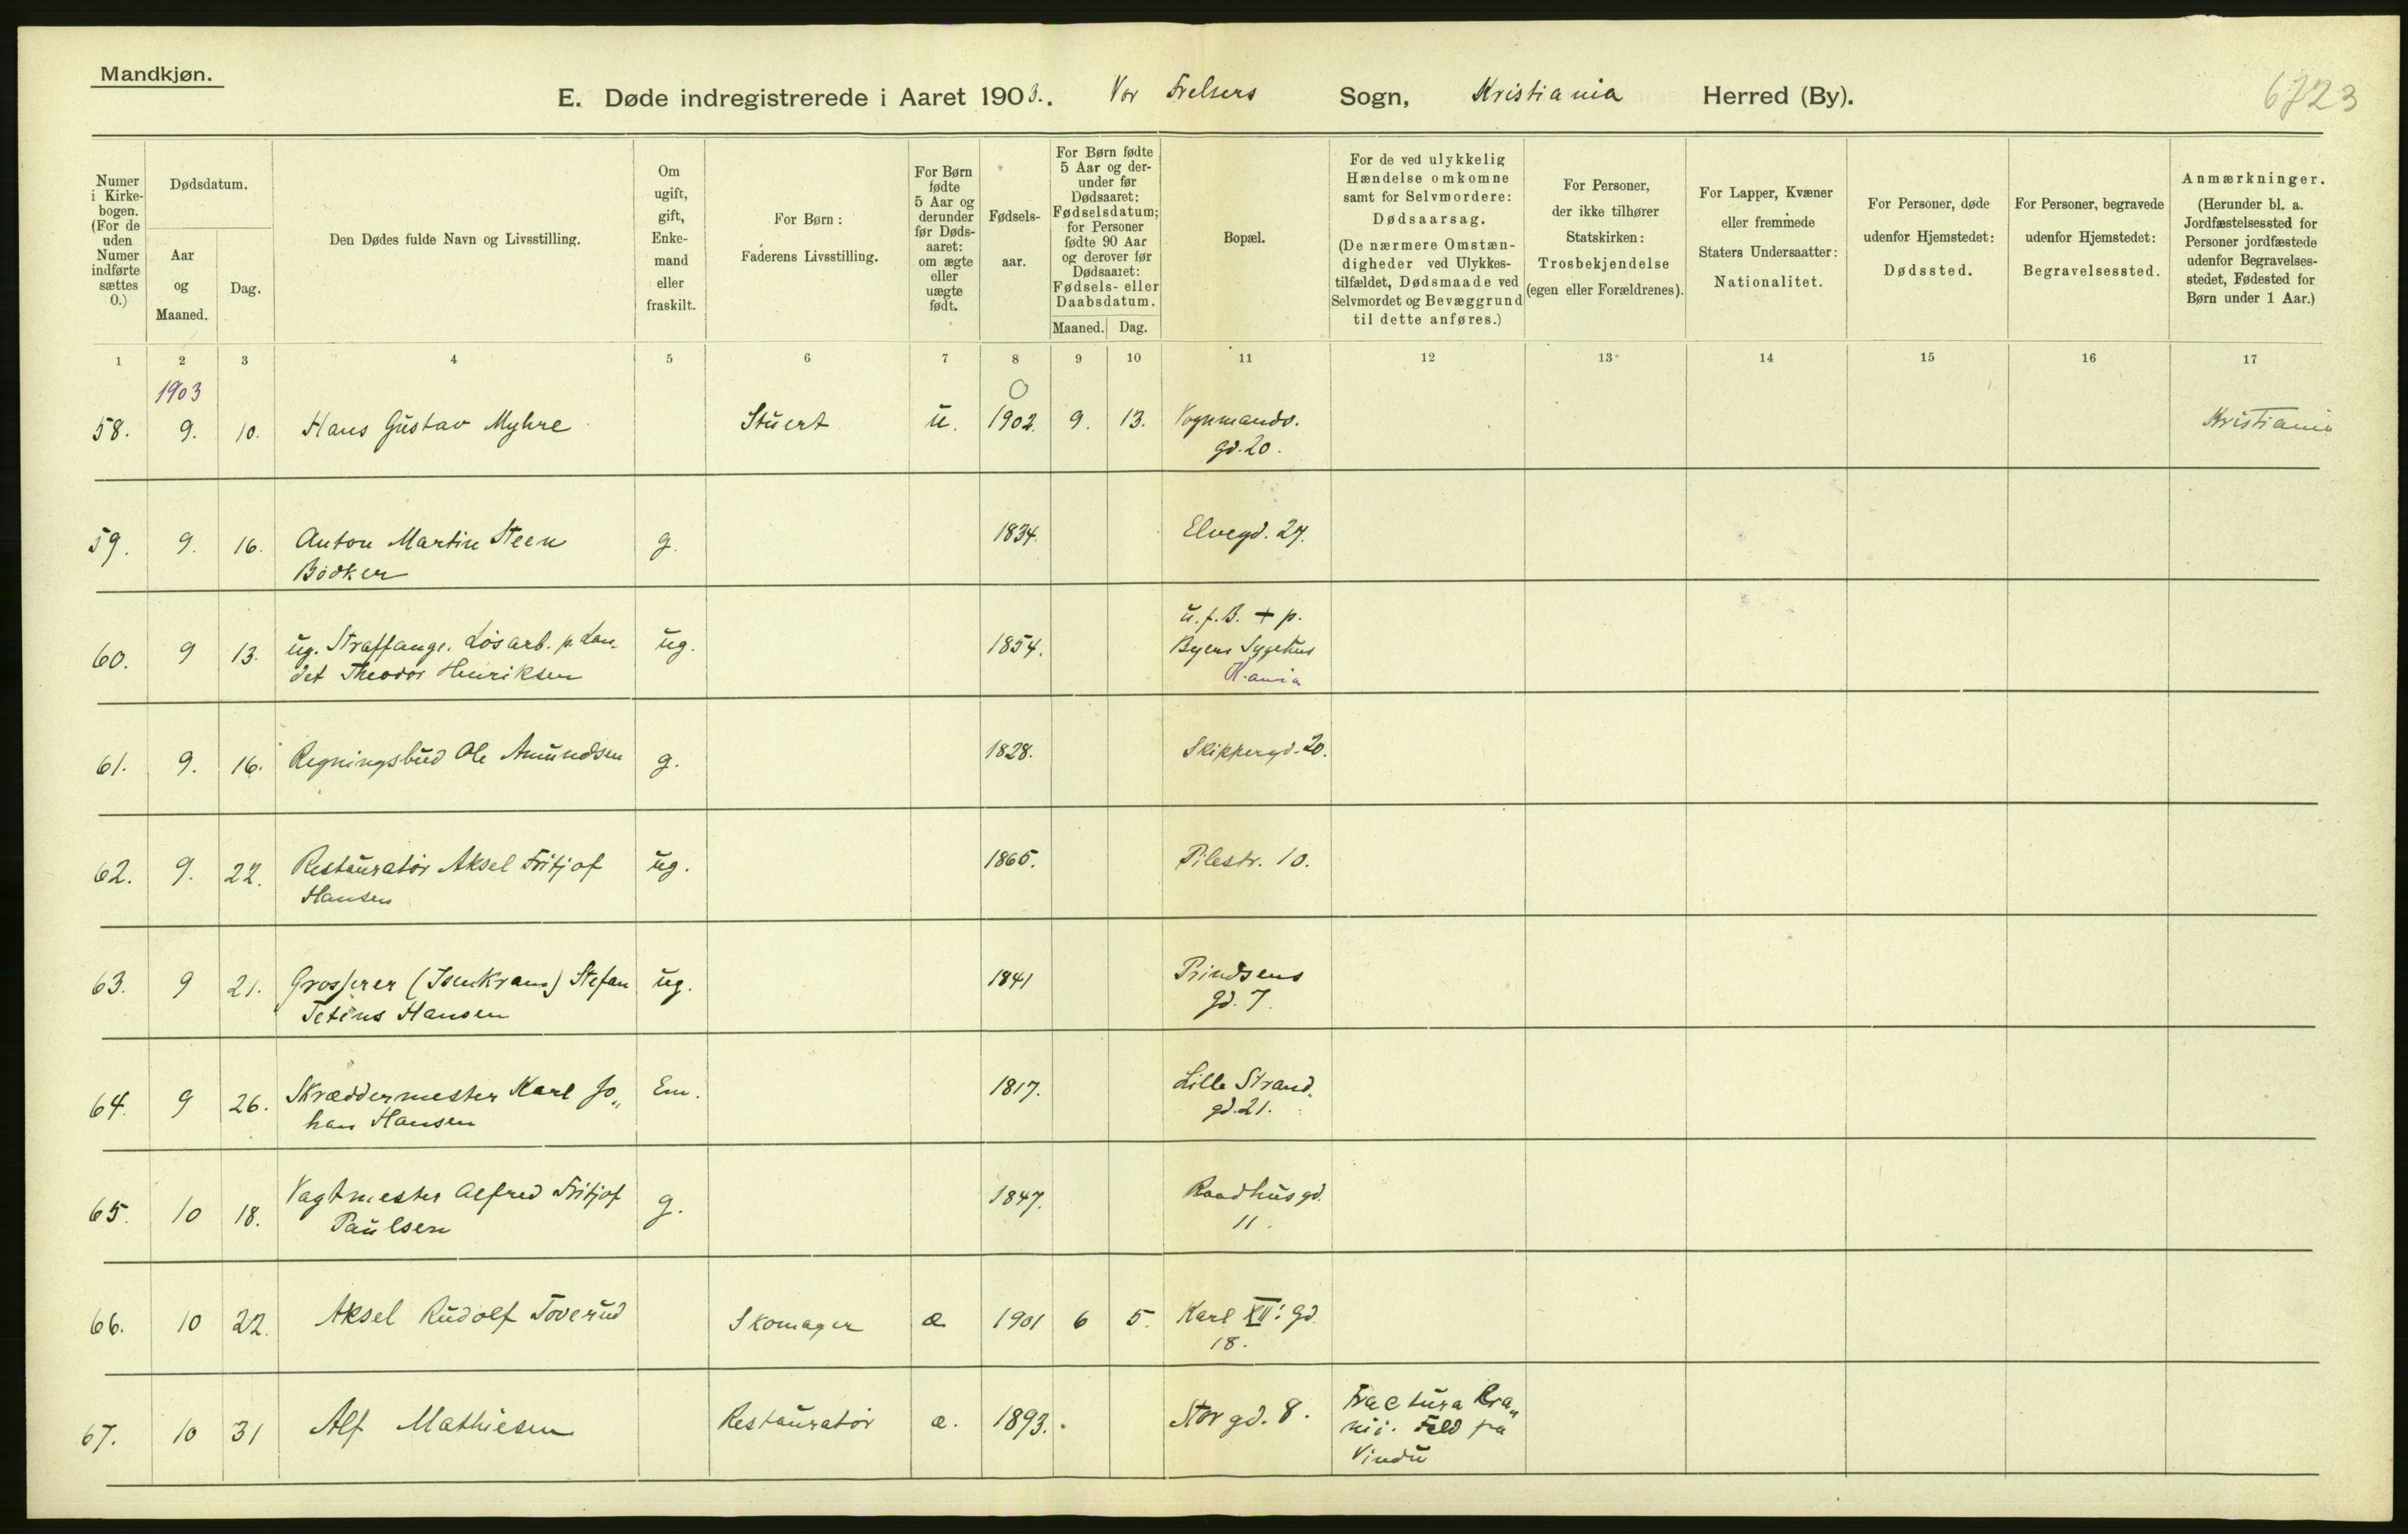 Mandkjøn.
E. Døde indregistrerede i Aaret 1903. Vor Frelsers Sogn, Kristiania Herred (By).
6723
Numer i Kirkebogen. (For de uden Numer indførte sættes 0.)
Dødsdatum.
Aar og Maaned.
Dag.
Den Dødes fulde Navn og Livsstilling.
Om ugift, gift, Enkemand eller fraskilt.
For Børn: Faderens Livsstilling.
For Børn fødte 5 Aar og derunder før Dødsaaret: om ægte eller uægte født.
Fødselsaar.
For Børn fødte 5 Aar og derunder før Dødsaaret: Fødselsdatum; for Personer fødte 90 Aar og derover før Dødsaaret: Fødsels- eller Daabsdatum.
Maaned. Dag.
Bopæl.
For de ved ulykkelig Hændelse omkomne samt for Selvmordere: Dødsaarsag. (De nærmere Omstændigheder ved Ulykkestilfældet, Dødsmaade ved Selvmordet og Bevæggrund til dette anføres.)
For Personer, der ikke tilhører Statskirken: Trosbekjendelse (egen eller Forældrenes).
For Lapper, Kvæner eller fremmede Staters Undersaatter: Nationalitet.
For Personer, døde udenfor Hjemstedet: Dødssted.
For Personer, begravede udenfor Hjemstedet: Begravelsessted.
Anmærkninger. (Herunder bl. a. Jordfæstelsessted for Personer jordfæstede udenfor Begravelsesstedet, Fødested for Børn under 1 Aar.)
1 2 3 4 5 6 7 8 9 10 11 12 13 14 15 16 17
1903 0
58. 9. 10. Hans Gustav Myhre Stuert u. 1902. 9. 13. Vognmands. Kristiania
gd. 20.
59. 9. 16. Anton Martin Steen g. 1834. Elvegd. 27.
Bødker
u. f. B. + p.
60. 9 13. ug. Straffange. Løsarb. p. Lan- ug. 1854. Byens Sygehus
det Theodor Henriksen K.ania
61. 9. 16. Regningsbud Ole Amundsen g. 1828. Skippergd. 20.
62. 9. 22. Restauratør Aksel Fritjof ug. 1865. Pilestr. 10.
Hansen
63. 9 21. Grosserer (Isenkram) Stefan ug. 1841 Prindsens
Hansen gd. 7.
64. 9 26. Skræddermester Karl Jo„ Em. 1817. Lille Strand.
han Hansen gd. 21.
65. 10 18. Vagtmester Alfred Fritjof g. 1847. Raadhusgd.
Paulsen 11.
66. 10 22. Aksel Rudolf Toverud Skomager æ 1901 6 5. Karl XII: gd.
18.
67. 10 31 Alf Mathiesen Restauratør æ. 1893. Storgd. 8. Fractura Kra„
nii. Fald fra
Vindu